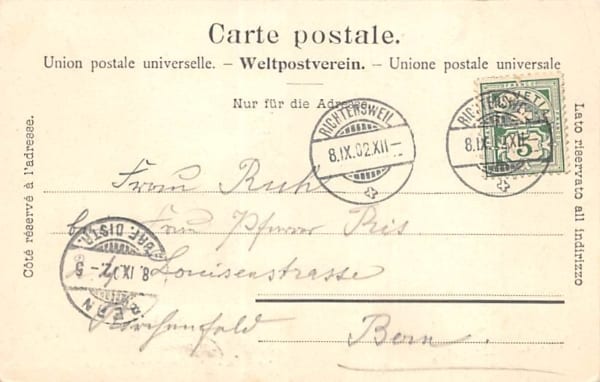 Carte postale.
Union postale universelle. – Weltpostverein. – Unione postale universale
Nur für die Adresse
Côté réservé à l'adresse.
Lato riservato all indirizzo
RICHTERSWEIL
8.IX.02.XII–
RICHTERSWEIL
8.IX.02.XII–
HELVETIA
5
Frau Ruh
Frau Pfarrer Ris.
Louisenstrasse
Kirchenfeld Bern.
BERN
8.IX.02.–5
BRF. DISTR.